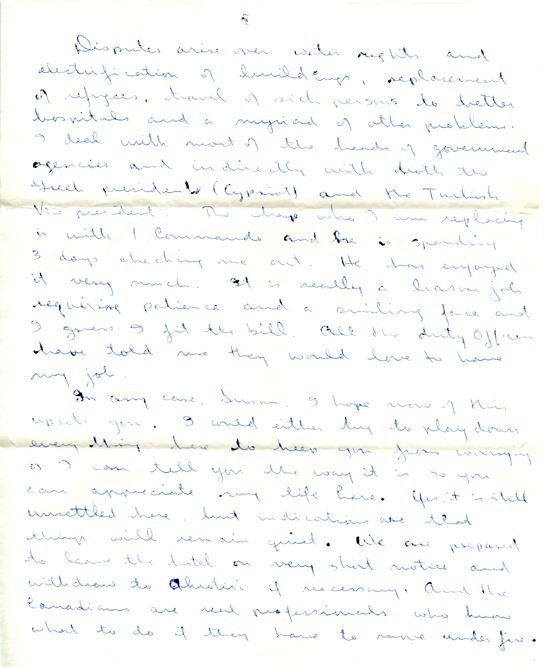 5
Disputes arise over water rights and
electrification of buildings, replacement
of refugees, travel of sick persons to better
hospitals and a myriad of other problems.
I deal with most of the heads of government
agencies and indirectly with both the
Greek president (Cypriot) and the Turkish
Vice president. The chap who I am replacing
is with 1 Commando and he is spending
3 days checking me out. He has enjoyed
it very much. It is really a liason job
requiring patience and a smiling face and
I guess I fit the bill. All the duty Officers
have told me they would love to have
my job.
In any case, Susan, I hope none of this
upsets you. I could either try to play down
everything here to keep you from worrying
or I can tell you the way it is so you
can appreciate my life here. Yes, it is still
unsettled here, but indications are that
things will remain quiet. We are prepared
to leave the hotel on very short notice and
withdraw to Akrotiri if necessary. And the
Canadians are real professionals who know
what to do if they have to move under fire.